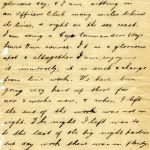 glorious day, & I am sitting in
an Officers Club many miles behind
the lines, & right on the sea coast.
I am doing a Coy Commanders
course. It is a glorious
spot & altogether I am enjoying
it immensely, it is such a change
from line work. We have been
doing very hard up there for
over 3 weeks now, & when I left
the end of the work was not in
sight. The night I left was to
be the last of the big night parties
but day work then was in plenty